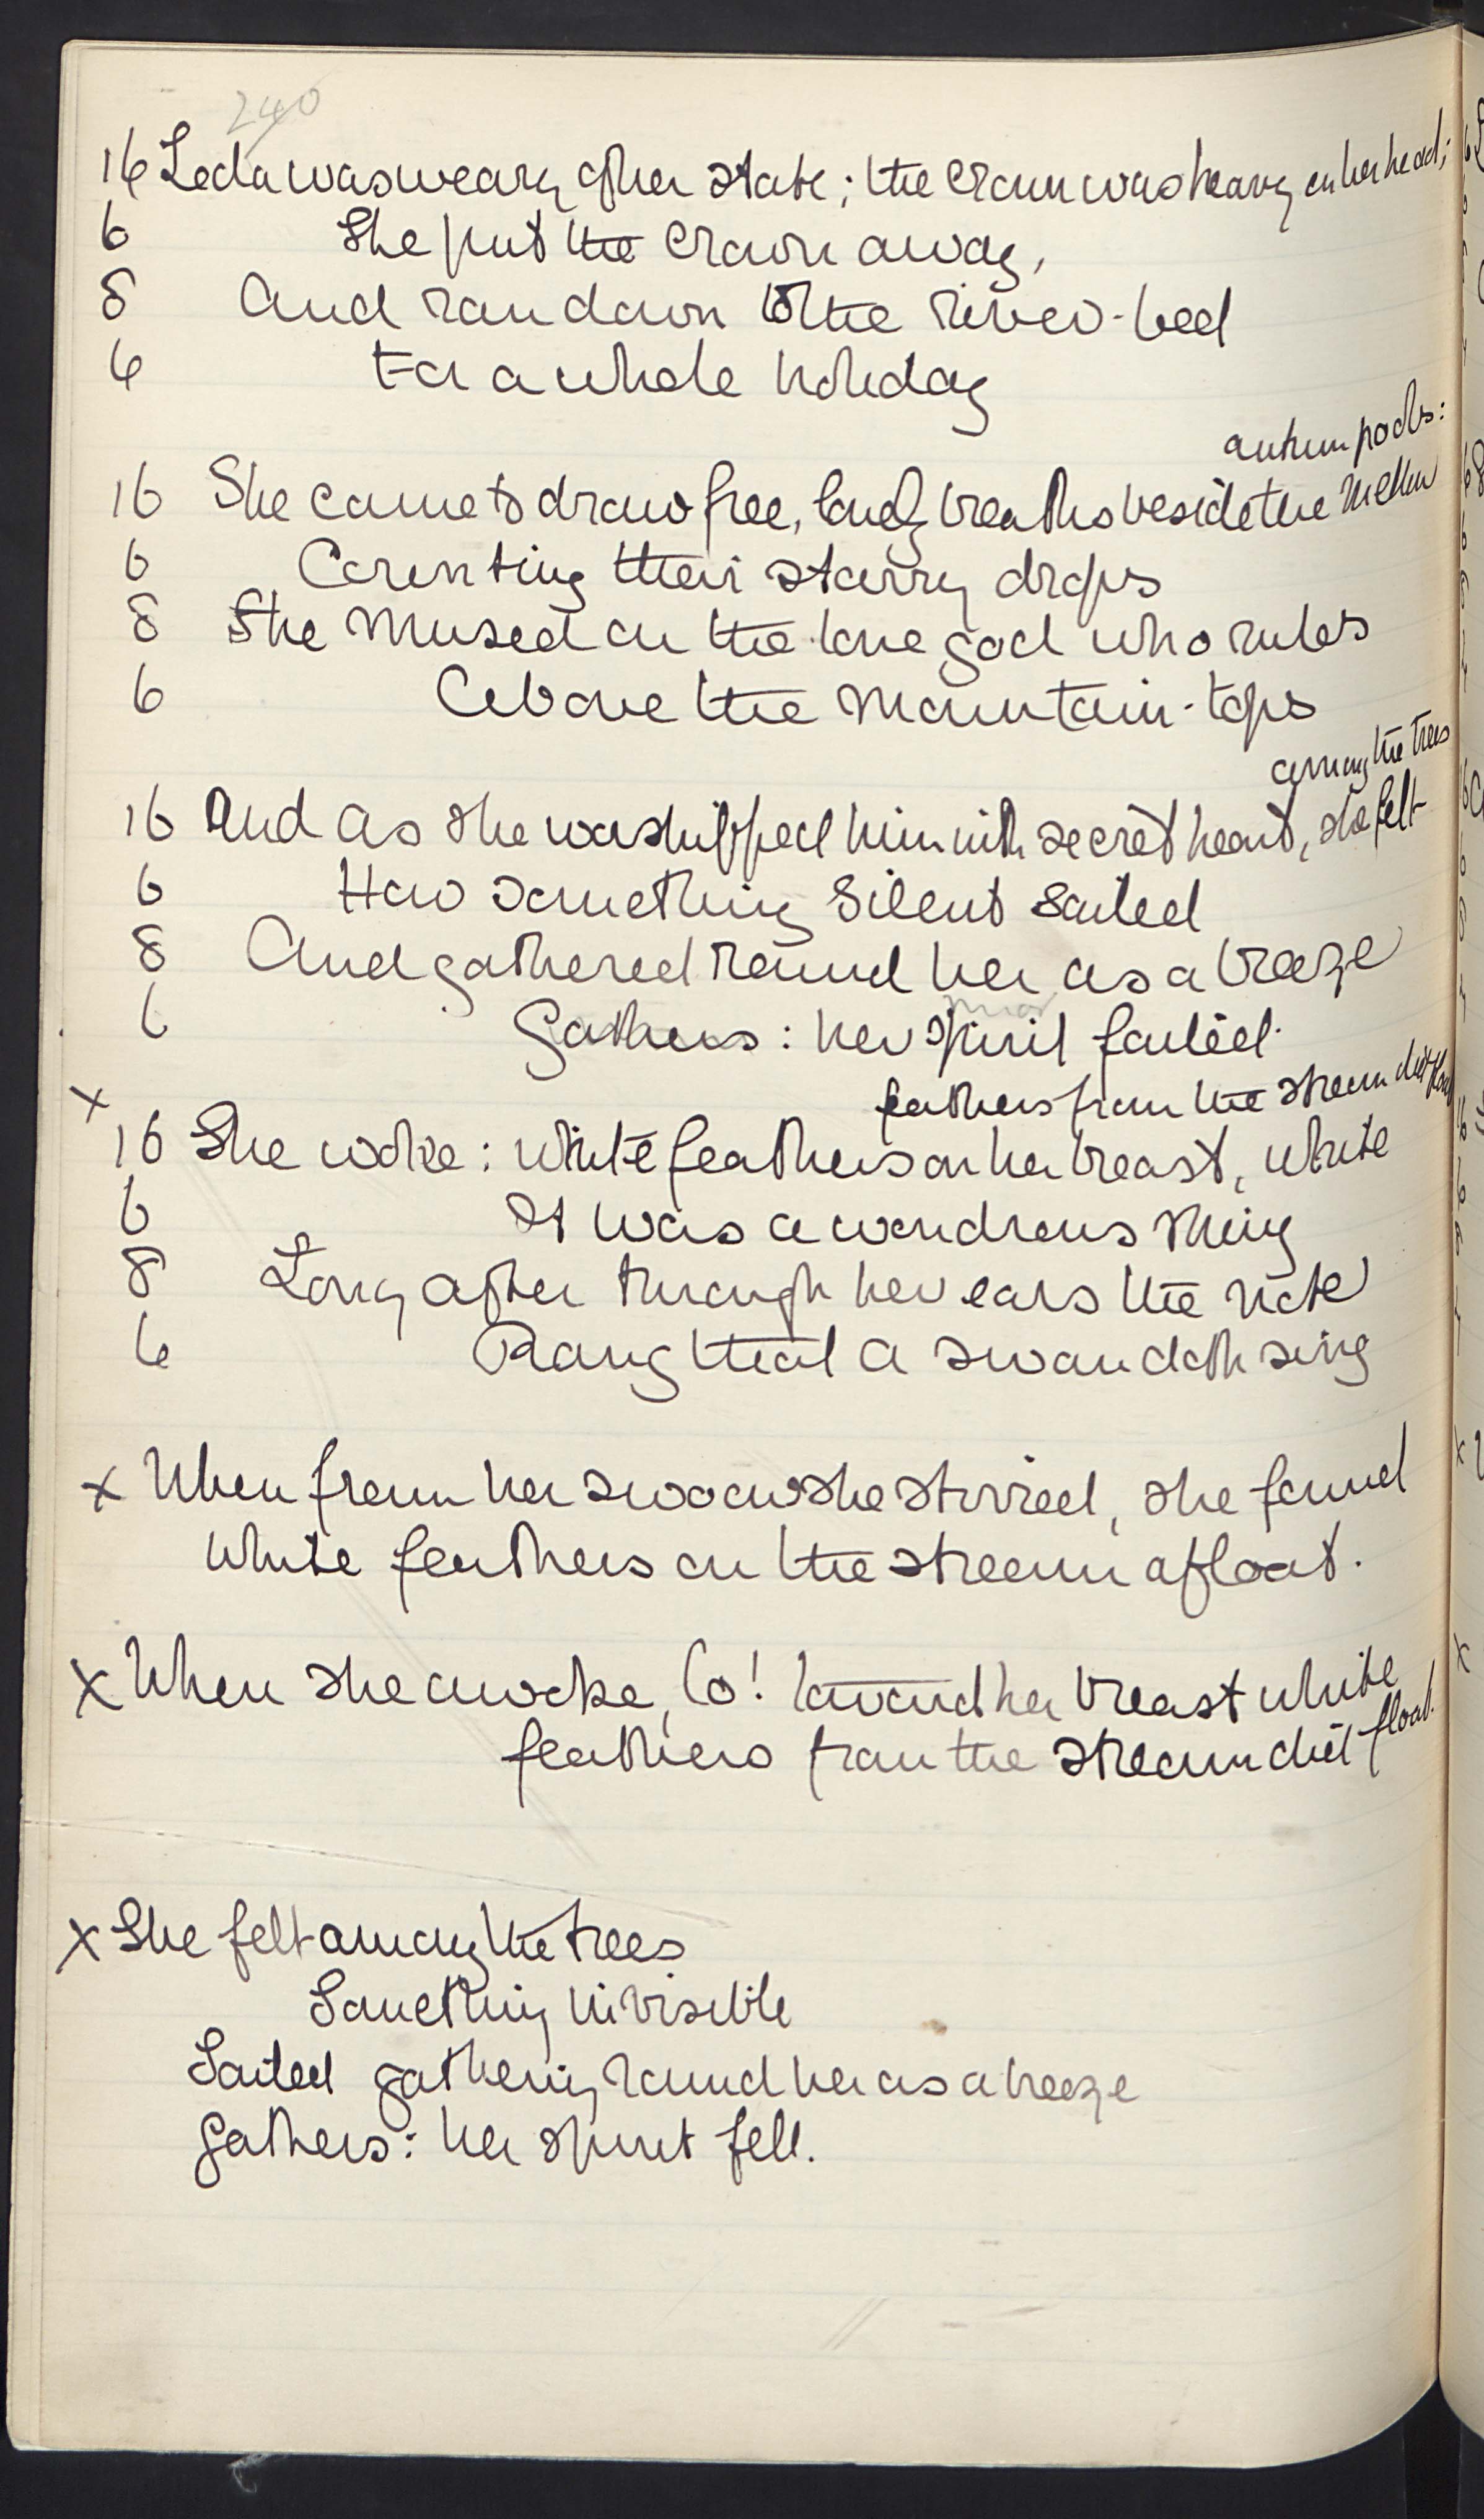 240
16 Leda was weary of her state; the crown was heavy on her head;
6 She put the crown away,
8 And ran down to the river-bed
6 For a whole holiday
autumn pools:
16 She came to draw free, lonely breaths beside the mellow
6 Counting their starry drops
8 She mused on the lone god who rules
6 Above the mountain-tops
among the trees
16 And as she worshipped him with secret heart, she felt
6 How something silent sailed
8 And gathered round her as a breeze
6 Gathers: her spirit failed.
feathers from the stream did float
x
16 She woke: white feathers on her breast, white
6 It was a wondrous thing
8 Long after through her ears the note
6 Rang that a swan doth sing
x When from her swoon she stirred, she found
white feathers on the stream afloat.
x When she awoke, lo! around her breast white
feathers from the stream did float.
x She felt among the trees
Something invisible
Sailed gathering round her as a breeze
gathers: her spirit fell.